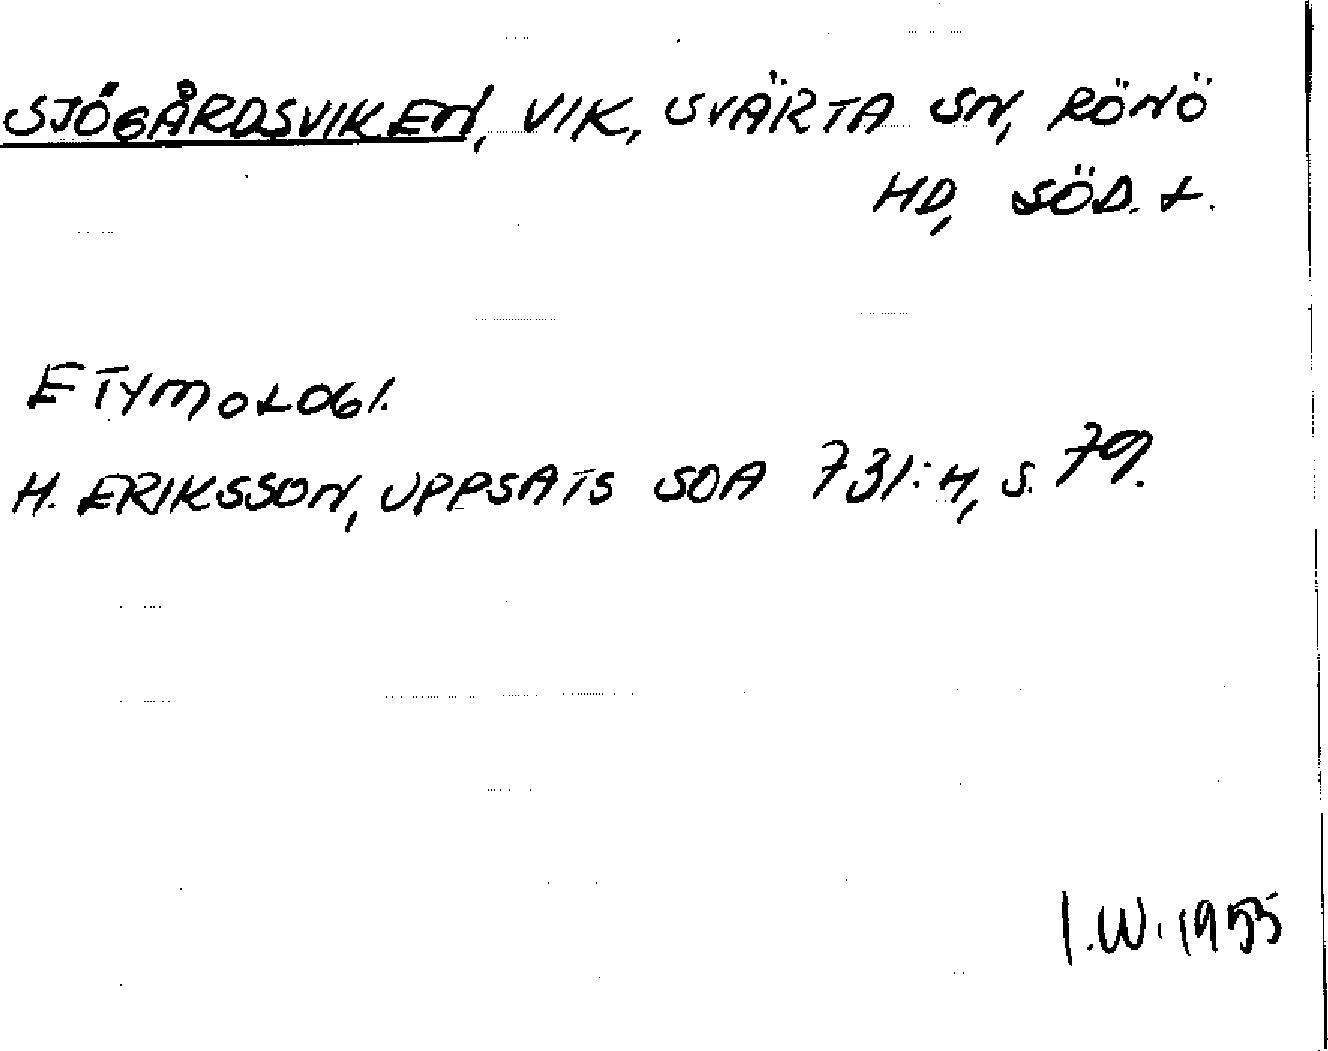 SJÖGÅRDSVIKEN, VIK, SVÄRTA SN, RÖNÖ
HD, SÖD. L.
ETYMOLOGI.
H. ERIKSSON, UPPSATS SOA 731:4, S. 79.
I.W. 1955